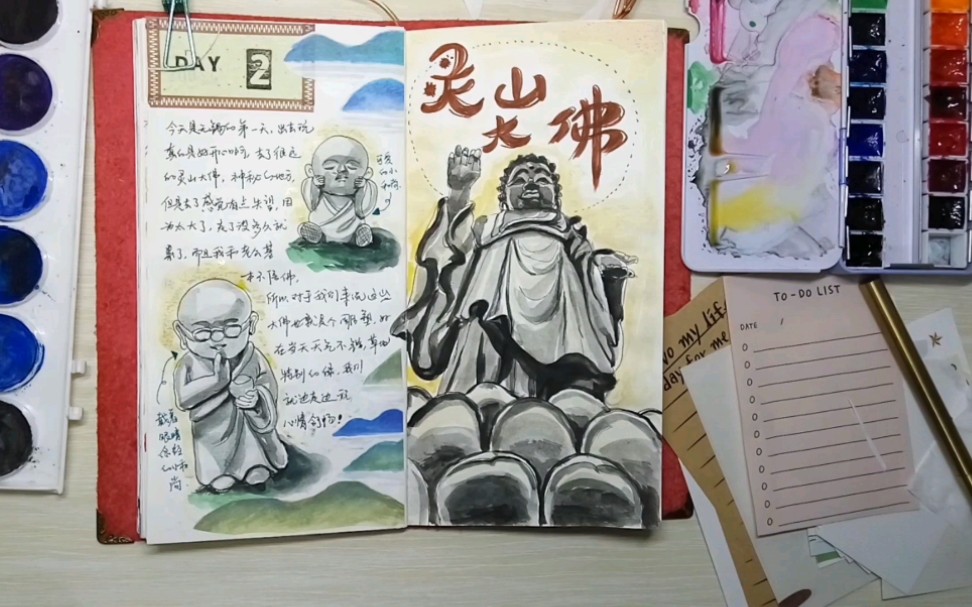 DAY 2
今天是无锡的第一天，出去玩
真的是如开心的，去了很远
的灵山大佛，神秘的地方
但是去了感觉有点失望，因
为太大了，走了没多久就
累了，而且我和老公基
本不信佛，
所以对于我们来说这些
大佛也就是个雕塑，好
在当天天气不错，草地
特别的绿，我们
就边走边玩
心情舒畅！
可爱
的小
和尚
戴着
眼睛
念经
的小和
尚
灵山
大佛
TO-DO LIST
DATE /
my life
day for me